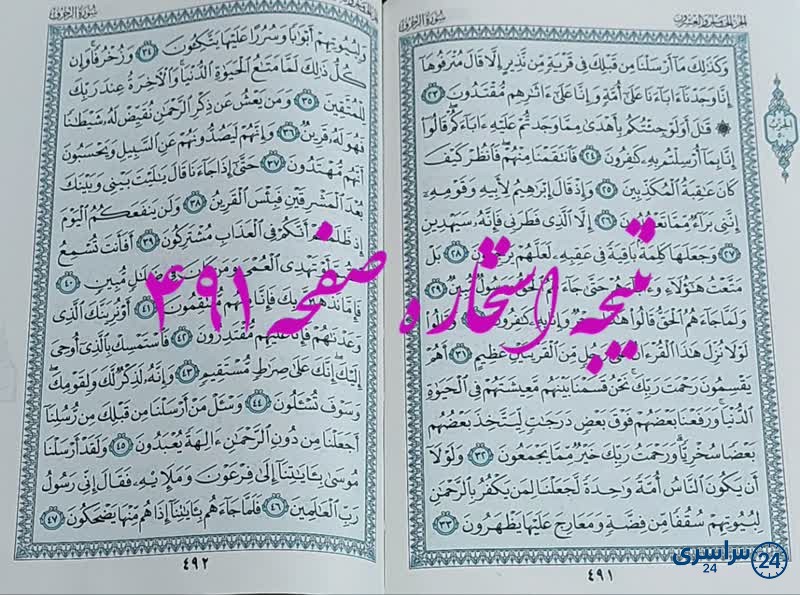 الجزء الخامس والعشرون
سورة الزخرف
وَكَذَٰلِكَ مَا أَرْسَلْنَا مِن قَبْلِكَ فِي قَرْيَةٍ مِّن نَّذِيرٍ إِلَّا قَالَ مُتْرَفُوهَا
إِنَّا وَجَدْنَا ءَابَاءَنَا عَلَىٰ أُمَّةٍ وَإِنَّا عَلَىٰ ءَاثَارِهِم مُّقْتَدُونَ ٢٣
۞ قَالَ أَوَلَوْ جِئْتُكُم بِأَهْدَىٰ مِمَّا وَجَدتُّمْ عَلَيْهِ ءَابَاءَكُمْ قَالُوا
إِنَّا بِمَا أُرْسِلْتُم بِهِ كَافِرُونَ ٢٤ فَانتَقَمْنَا مِنْهُمْ فَانظُرْ كَيْفَ
كَانَ عَاقِبَةُ الْمُكَذِّبِينَ ٢٥ وَإِذْ قَالَ إِبْرَاهِيمُ لِأَبِيهِ وَقَوْمِهِ
إِنَّنِي بَرَاءٌ مِّمَّا تَعْبُدُونَ ٢٦ إِلَّا الَّذِي فَطَرَنِي فَإِنَّهُ سَيَهْدِينِ
٢٧ وَجَعَلَهَا كَلِمَةً بَاقِيَةً فِي عَقِبِهِ لَعَلَّهُمْ يَرْجِعُونَ ٢٨ بَلْ
مَتَّعْتُ هَٰؤُلَاءِ وَءَابَاءَهُمْ حَتَّىٰ جَاءَهُمُ الْحَقُّ وَرَسُولٌ مُّبِينٌ ٢٩
وَلَمَّا جَاءَهُمُ الْحَقُّ قَالُوا هَٰذَا سِحْرٌ وَإِنَّا بِهِ كَافِرُونَ ٣٠ وَقَالُوا
لَوْلَا نُزِّلَ هَٰذَا الْقُرْءَانُ عَلَىٰ رَجُلٍ مِّنَ الْقَرْيَتَيْنِ عَظِيمٍ ٣١ أَهُمْ
يَقْسِمُونَ رَحْمَتَ رَبِّكَ نَحْنُ قَسَمْنَا بَيْنَهُم مَّعِيشَتَهُمْ فِي الْحَيَاةِ
الدُّنْيَا وَرَفَعْنَا بَعْضَهُمْ فَوْقَ بَعْضٍ دَرَجَاتٍ لِّيَتَّخِذَ بَعْضُهُم
بَعْضًا سُخْرِيًّا وَرَحْمَتُ رَبِّكَ خَيْرٌ مِّمَّا يَجْمَعُونَ ٣٢ وَلَوْلَا
أَن يَكُونَ النَّاسُ أُمَّةً وَاحِدَةً لَّجَعَلْنَا لِمَن يَكْفُرُ بِالرَّحْمَٰنِ
لِبُيُوتِهِمْ سُقُفًا مِّن فِضَّةٍ وَمَعَارِجَ عَلَيْهَا يَظْهَرُونَ ٣٣
٤٩١
الحزب
سورة الزخرف
وَلِبُيُوتِهِمْ أَبْوَابًا وَسُرُرًا عَلَيْهَا يَتَّكِئُونَ ٣٤ وَزُخْرُفًا وَإِن
كُلُّ ذَٰلِكَ لَمَّا مَتَاعُ الْحَيَاةِ الدُّنْيَا وَالْآخِرَةُ عِندَ رَبِّكَ
لِلْمُتَّقِينَ ٣٥ وَمَن يَعْشُ عَن ذِكْرِ الرَّحْمَٰنِ نُقَيِّضْ لَهُ شَيْطَانًا
فَهُوَ لَهُ قَرِينٌ ٣٦ وَإِنَّهُمْ لَيَصُدُّونَهُمْ عَنِ السَّبِيلِ وَيَحْسَبُونَ
أَنَّهُم مُّهْتَدُونَ ٣٧ حَتَّىٰ إِذَا جَاءَنَا قَالَ يَالَيْتَ بَيْنِي وَبَيْنَكَ
بُعْدَ الْمَشْرِقَيْنِ فَبِئْسَ الْقَرِينُ ٣٨ وَلَن يَنفَعَكُمُ الْيَوْمَ
إِذ ظَّلَمْتُمْ أَنَّكُمْ فِي الْعَذَابِ مُشْتَرِكُونَ ٣٩ أَفَأَنتَ تُسْمِعُ
الصُّمَّ أَوْ تَهْدِي الْعُمْيَ وَمَن كَانَ فِي ضَلَالٍ مُّبِينٍ ٤٠
فَإِمَّا نَذْهَبَنَّ بِكَ فَإِنَّا مِنْهُم مُّنتَقِمُونَ ٤١ أَوْ نُرِيَنَّكَ الَّذِي
وَعَدْنَاهُمْ فَإِنَّا عَلَيْهِم مُّقْتَدِرُونَ ٤٢ فَاسْتَمْسِكْ بِالَّذِي أُوحِيَ
إِلَيْكَ إِنَّكَ عَلَىٰ صِرَاطٍ مُّسْتَقِيمٍ ٤٣ وَإِنَّهُ لَذِكْرٌ لَّكَ وَلِقَوْمِكَ
وَسَوْفَ تُسْأَلُونَ ٤٤ وَسْئَلْ مَنْ أَرْسَلْنَا مِن قَبْلِكَ مِن رُّسُلِنَا
أَجَعَلْنَا مِن دُونِ الرَّحْمَٰنِ ءَالِهَةً يُعْبَدُونَ ٤٥ وَلَقَدْ أَرْسَلْنَا
مُوسَىٰ بِآيَاتِنَا إِلَىٰ فِرْعَوْنَ وَمَلَإِيْهِ فَقَالَ إِنِّي رَسُولُ
رَبِّ الْعَالَمِينَ ٤٦ فَلَمَّا جَاءَهُم بِآيَاتِنَا إِذَا هُم مِّنْهَا يَضْحَكُونَ ٤٧
٤٩٢
نتیجه استخاره صفحه ۴۹۱
سراسری 24
24